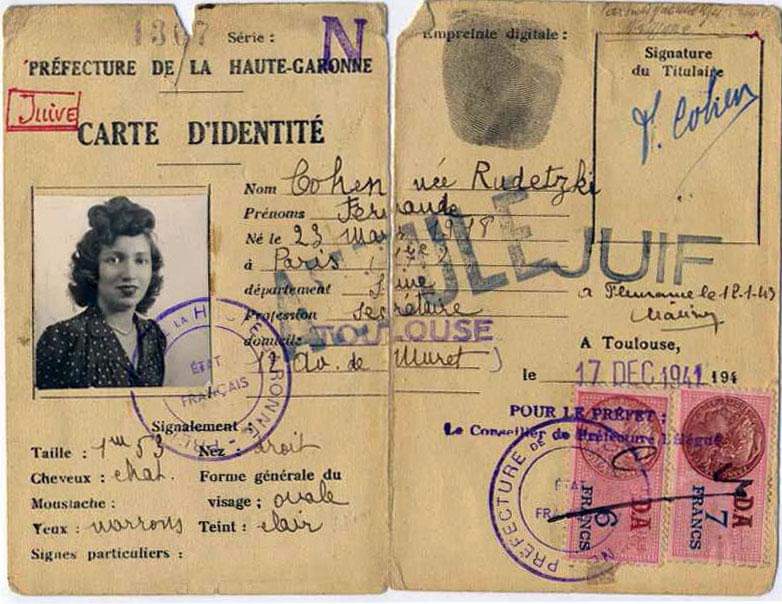 1307 Série : N
PRÉFECTURE DE LA HAUTE-GARONNE
Juive
CARTE D'IDENTITÉ
Nom Cohen née Rudetzki
Prénoms Fernande
Né le 23 Mars 1918
à Paris
département Seine
Profession Secrétaire
TOULOUSE
domicile
12 Av. de Muret
ANNULÉ
JUIF
LA HAUTE GARONNE
ÉTAT
FRANÇAIS
Signalement :
Taille : 1m53 Nez : droit
Cheveux : chat. Forme générale du
visage ; ovale
Moustache :
Yeux : marrons Teint : clair
Signes particuliers :
Empreinte digitale :
Signature
du Titulaire
F. Cohen
à Fleurance le 12-1-43
A Toulouse,
le 17 DEC 1941 194
POUR LE PRÉFET :
Le Conseiller de Préfecture Délégué
PRÉFECTURE DE
ÉTAT
6
FRANCS
DA
7
FRANCS
DA